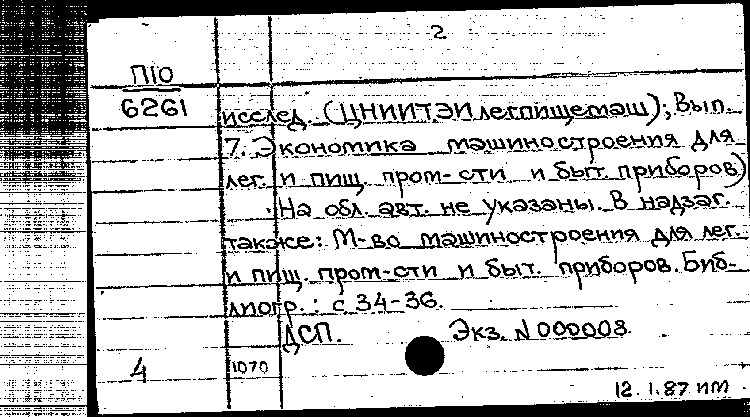 2
П10
6261
исслед. (ЦНИИТЭИлегпищемаш); Вып.
7. Экономика машиностроения для
лег. и пищ. пром-сти и быт. приборов)
На обл. авт. не указаны. В надзаг.
также: М-во машиностроения для лег.
и пищ. пром-сти и быт. приборов. Биб-
лиогр.: с 34-36.
ДСП. Экз. N 000003.
4 1070
12.1.87 ИМ